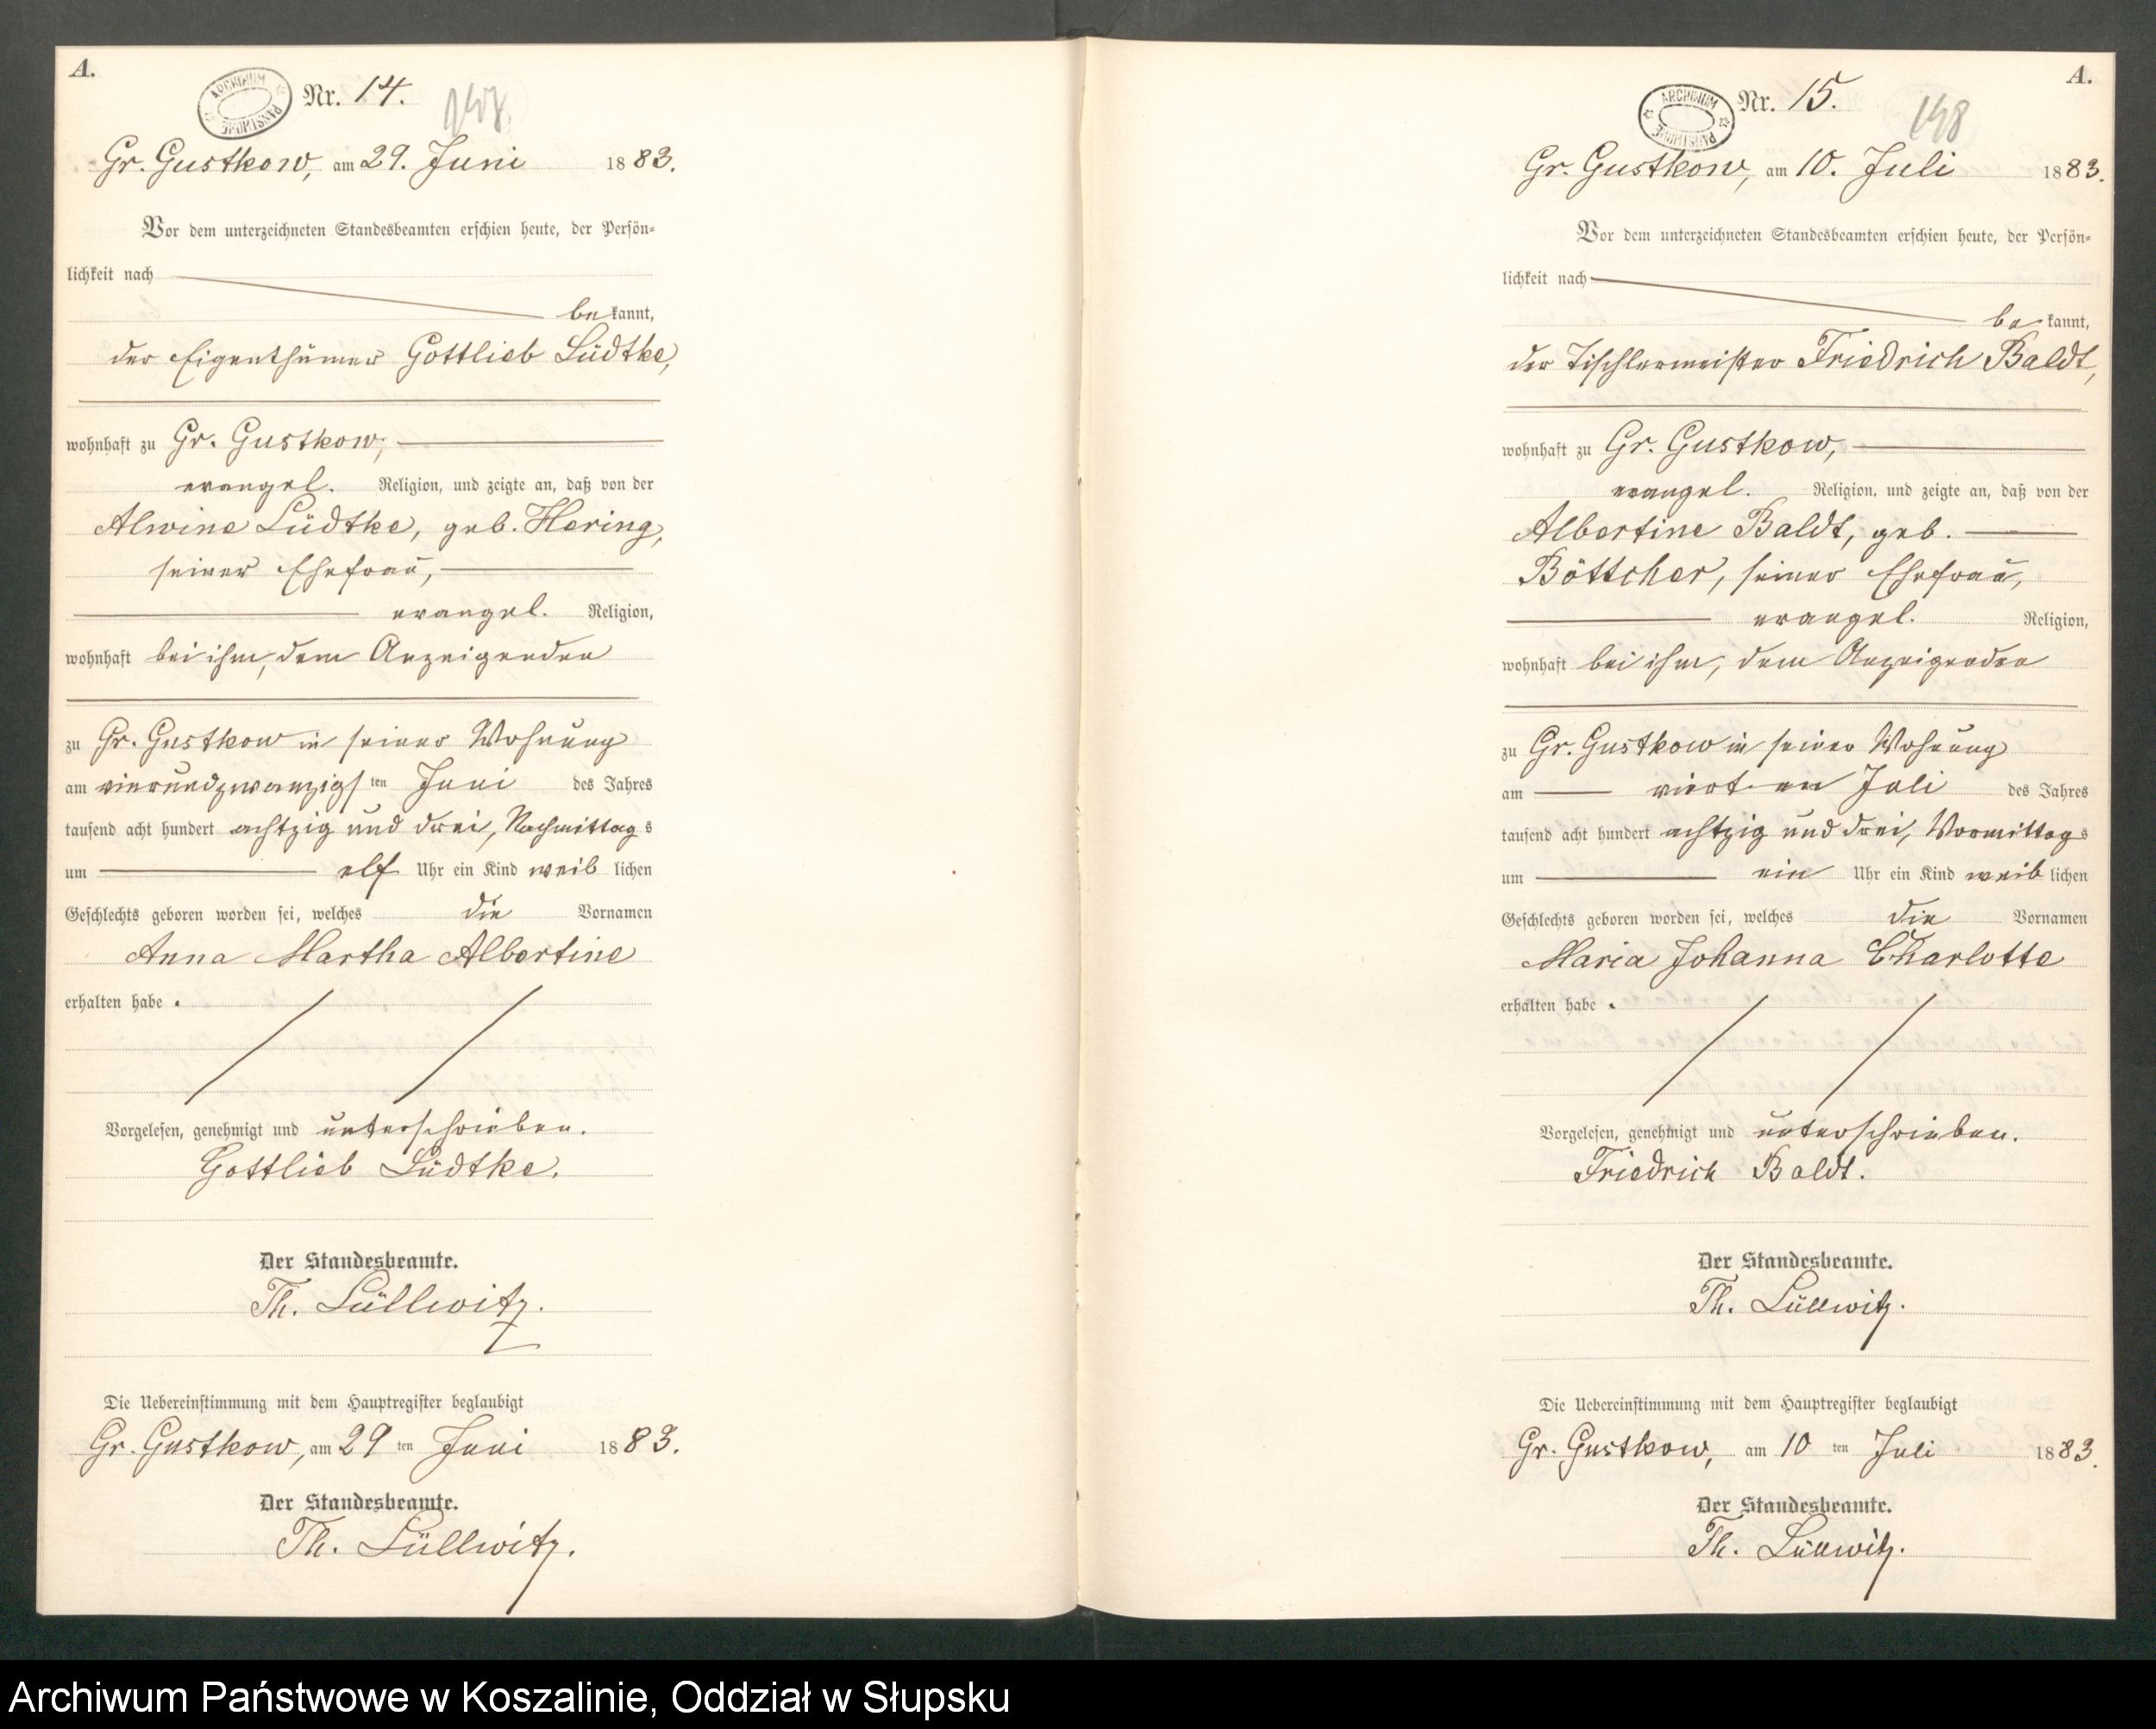 A.
ARCHIWUM PAŃSTWOWE
Nr. 14.
Gr. Gustkow, am 29. Juni 1883.
Vor dem unterzeichneten Standesbeamten erschien heute, der Persön-
lichkeit nach
bekannt,
der Eigenthümer Gottlieb Lüdtke,
wohnhaft zu Gr. Gustkow,
evangel. Religion, und zeigte an, daß von der
Alwine Lüdtke, geb. Hering,
seiner Ehefrau,
evangel. Religion,
wohnhaft bei ihm, dem Anzeigenden
zu Gr. Gustkow in seiner Wohnung
am vierundzwanzigsten Juni des Jahres
tausend acht hundert achtzig und drei, Nachmittags
um elf Uhr ein Kind weiblichen
Geschlechts geboren worden sei, welches die Vornamen
Anna Martha Albertine
erhalten habe.
Vorgelesen, genehmigt und unterschrieben.
Gottlieb Lüdtke.
Der Standesbeamte.
Th. Lüllwitz.
Die Uebereinstimmung mit dem Hauptregister beglaubigt
Gr. Gustkow, am 29ten Juni 1883.
Der Standesbeamte.
Th. Lüllwitz.
A.
ARCHIWUM PAŃSTWOWE
Nr. 15.
148
Gr. Gustkow, am 10. Juli 1883.
Vor dem unterzeichneten Standesbeamten erschien heute, der Persön-
lichkeit nach
bekannt,
der Tischlermeister Friedrich Baldt,
wohnhaft zu Gr. Gustkow,
evangel. Religion, und zeigte an, daß von der
Albertine Baldt, geb.
Böttcher, seiner Ehefrau,
evangel. Religion,
wohnhaft bei ihm, dem Anzeigenden
zu Gr. Gustkow in seiner Wohnung
am vierten Juli des Jahres
tausend acht hundert achtzig und drei, Vormittags
um ein Uhr ein Kind weiblichen
Geschlechts geboren worden sei, welches die Vornamen
Maria Johanna Charlotte
erhalten habe.
Vorgelesen, genehmigt und unterschrieben.
Friedrich Baldt.
Der Standesbeamte.
Th. Lüllwitz.
Die Uebereinstimmung mit dem Hauptregister beglaubigt
Gr. Gustkow, am 10ten Juli 1883.
Der Standesbeamte.
Th. Lüllwitz.
Archiwum Państwowe w Koszalinie, Oddział w Słupsku